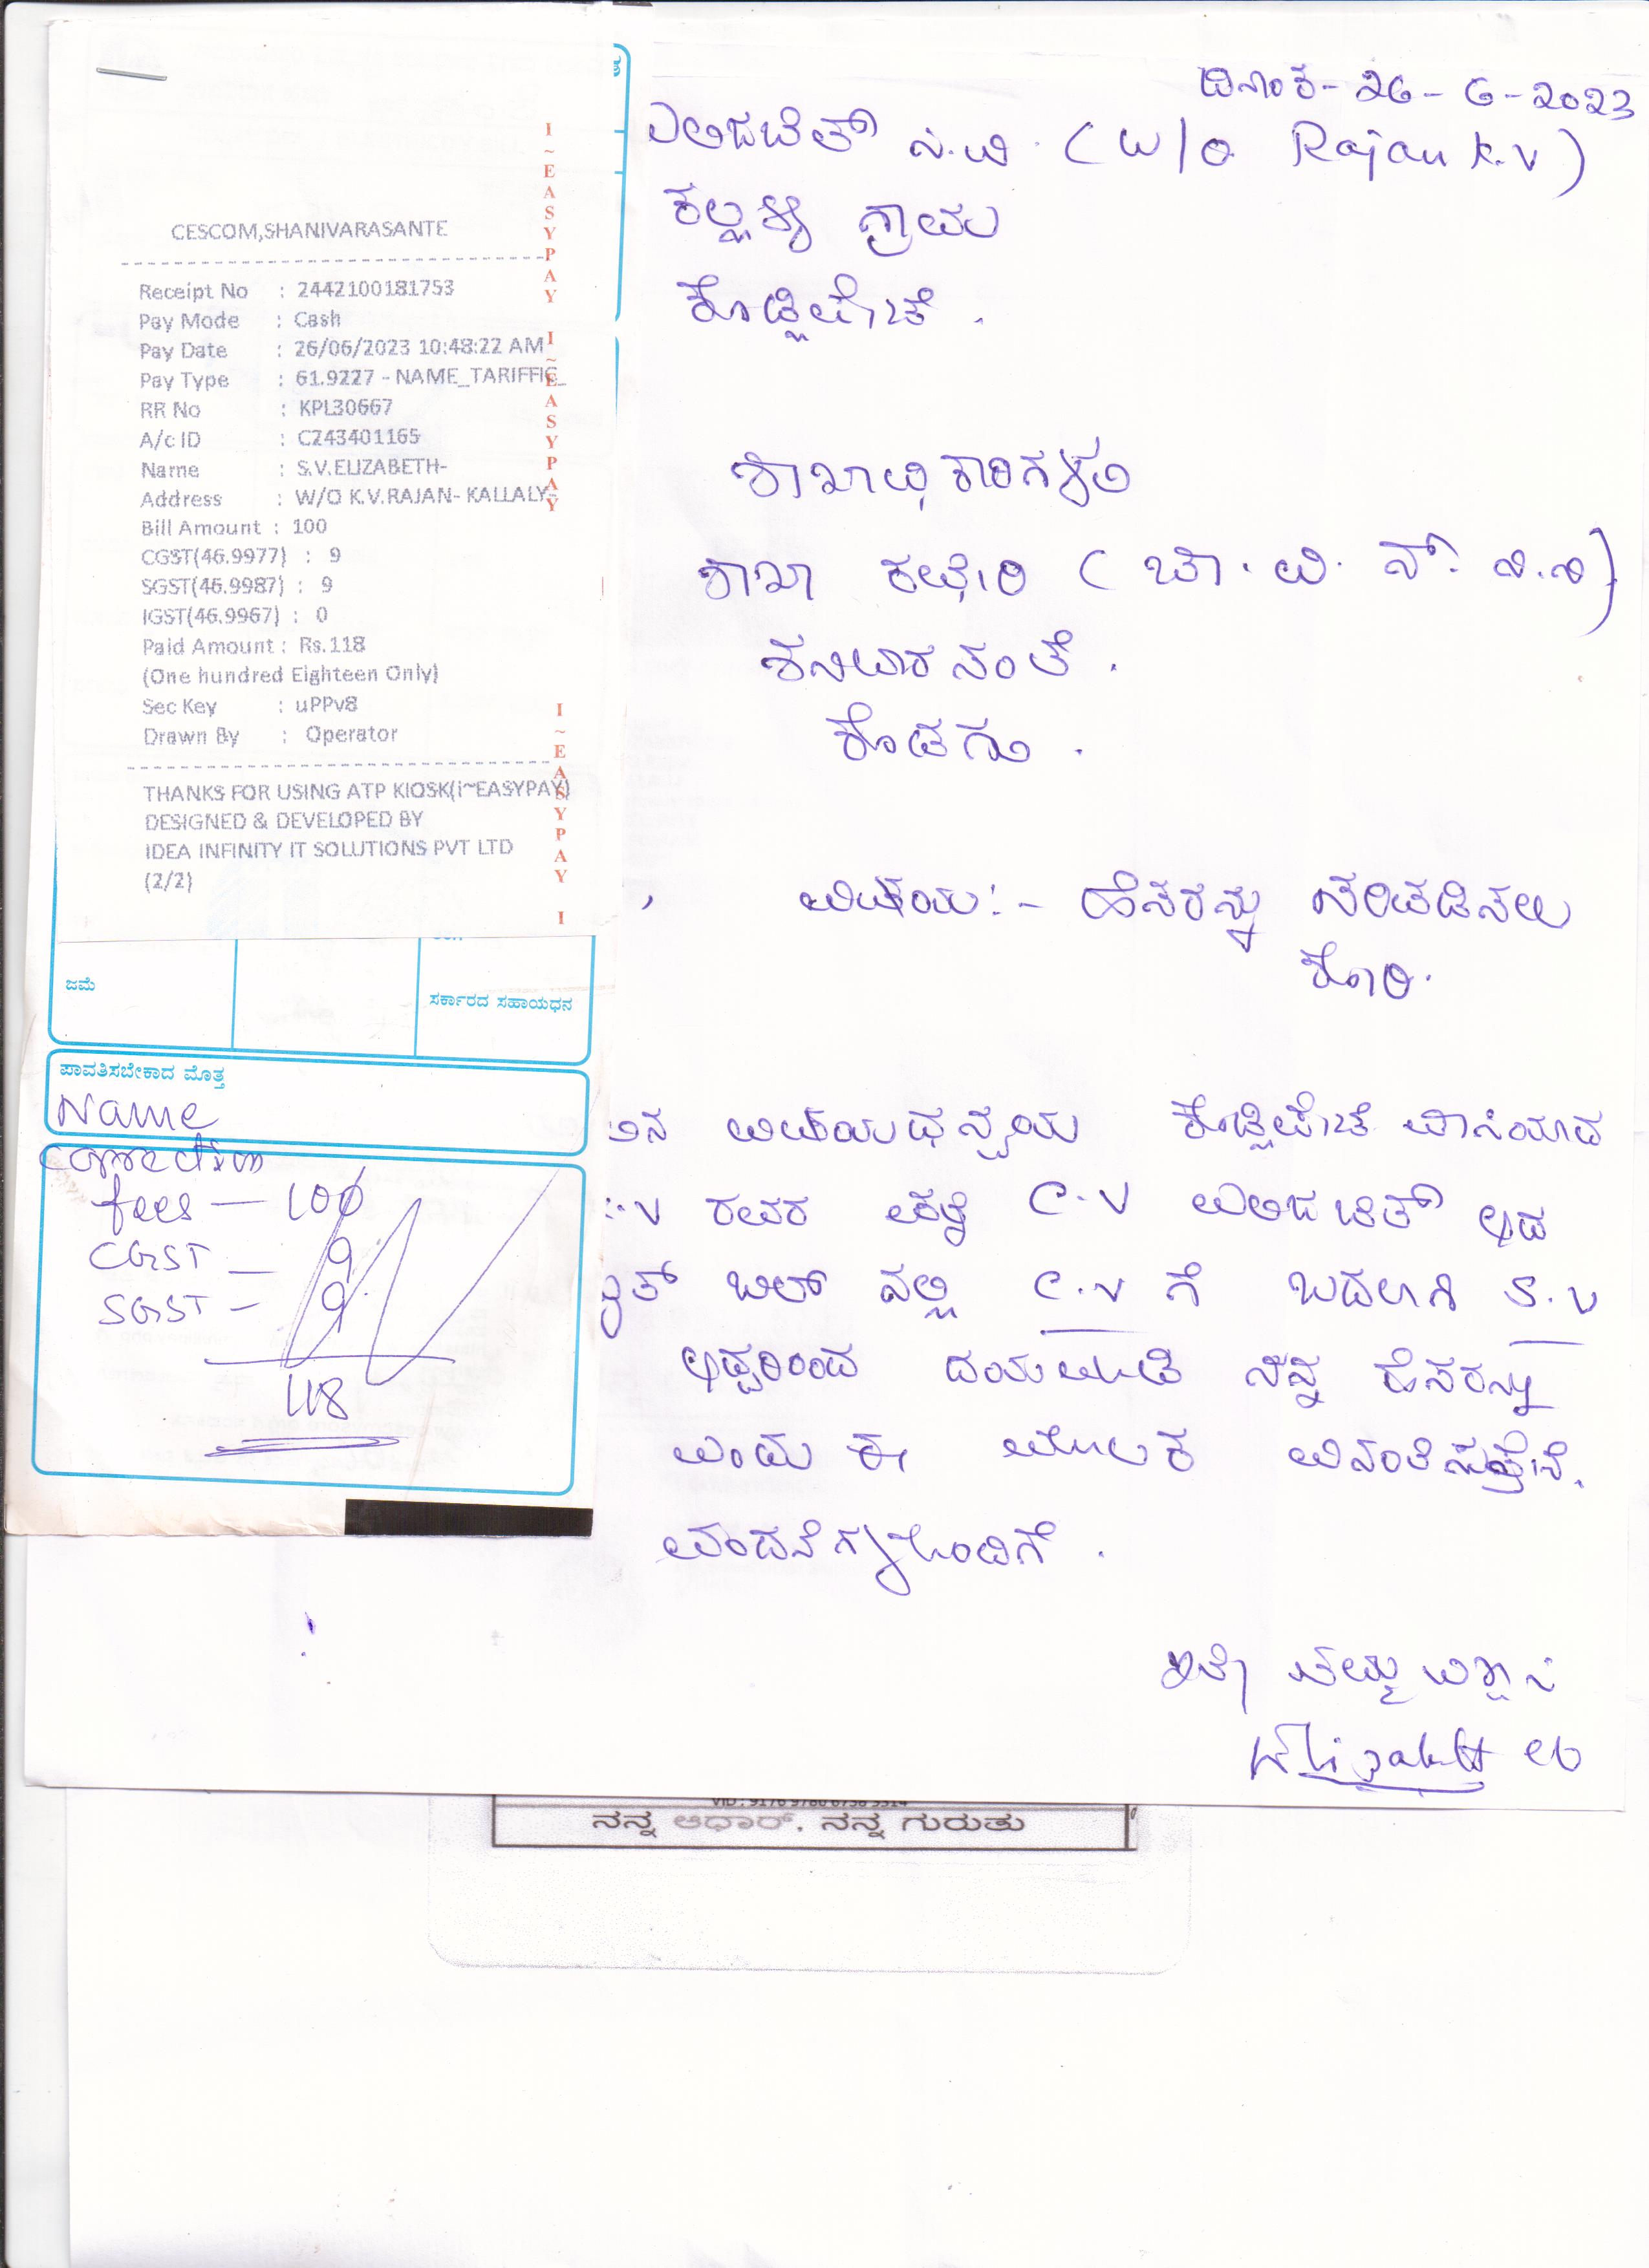 CESCOM,SHANIVARASANTE
Receipt No : 2442100181753
Pay Mode : Cash
Pay Date : 26/06/2023 10:48:22 AM
Pay Type : 61.9227 - NAME_TARIFFIC_
RR No : KPL30667
A/c ID : C243401165
Name : S.V.ELIZABETH-
Address : W/O K.V.RAJAN- KALLALY-
Bill Amount : 100
CGST(46.9977) : 9
SGST(46.9987) : 9
IGST(46.9967) : 0
Paid Amount : Rs.118
(One hundred Eighteen Only)
Sec Key : uPPv8
Drawn By : Operator
THANKS FOR USING ATP KIOSK(i~EASYPAY)
DESIGNED & DEVELOPED BY
IDEA INFINITY IT SOLUTIONS PVT LTD
(2/2)
I~EASYPAY I~EASYPAY
I~EASYPAY I
ಜಮೆ
ಸರ್ಕಾರದ ಸಹಾಯಧನ
ಪಾವತಿಸಬೇಕಾದ ಮೊತ್ತ
Name
correction
fees — 100
CGST — 9
SGST — 9
118
ದಿನಾಂಕ - 26 - 6 - 2023
ಎಲಿಜಬೆತ್ ಸಿ.ವಿ. (W/o Rajan K.V)
ಕಲ್ಲಳ್ಳಿ ಗ್ರಾಮ
ಕೊಡ್ಲಿಪೇಟೆ.
ಶಾಖಾಧಿಕಾರಿಗಳು
ಶಾಖಾ ಕಛೇರಿ (ಚಾ.ವಿ.ಸ್.ನಿ.ನಿ)
ಶನಿವಾರಸಂತೆ.
ಕೊಡಗು.
ವಿಷಯ:- ಹೆಸರನ್ನು ಸರಿಪಡಿಸಲು
ಕೋರಿ.
ವಿಷಯಧನ್ವಯ ಕೊಡ್ಲಿಪೇಟೆ ವಾಸಿಯಾದ
.V ರವರ ಪತ್ನಿ C.V ಎಲಿಜಬೆತ್ ಆದ
ಬಿಲ್ ನಲ್ಲಿ C.V ಗೆ ಬದಲಾಗಿ S.V
ಆದ್ದರಿಂದ ದಯಮಾಡಿ ನನ್ನ ಹೆಸರನ್ನು
ಎಂದು ಈ ಮೂಲಕ ವಿನಂತಿಸುತ್ತೇನೆ.
ವಂದನೆಗಳೊಂದಿಗೆ.
ಇತಿ ತಮ್ಮ ವಿಶ್ವಾಸಿ
Elizabeth CV
ನನ್ನ ಆಧಾರ್, ನನ್ನ ಗುರುತು